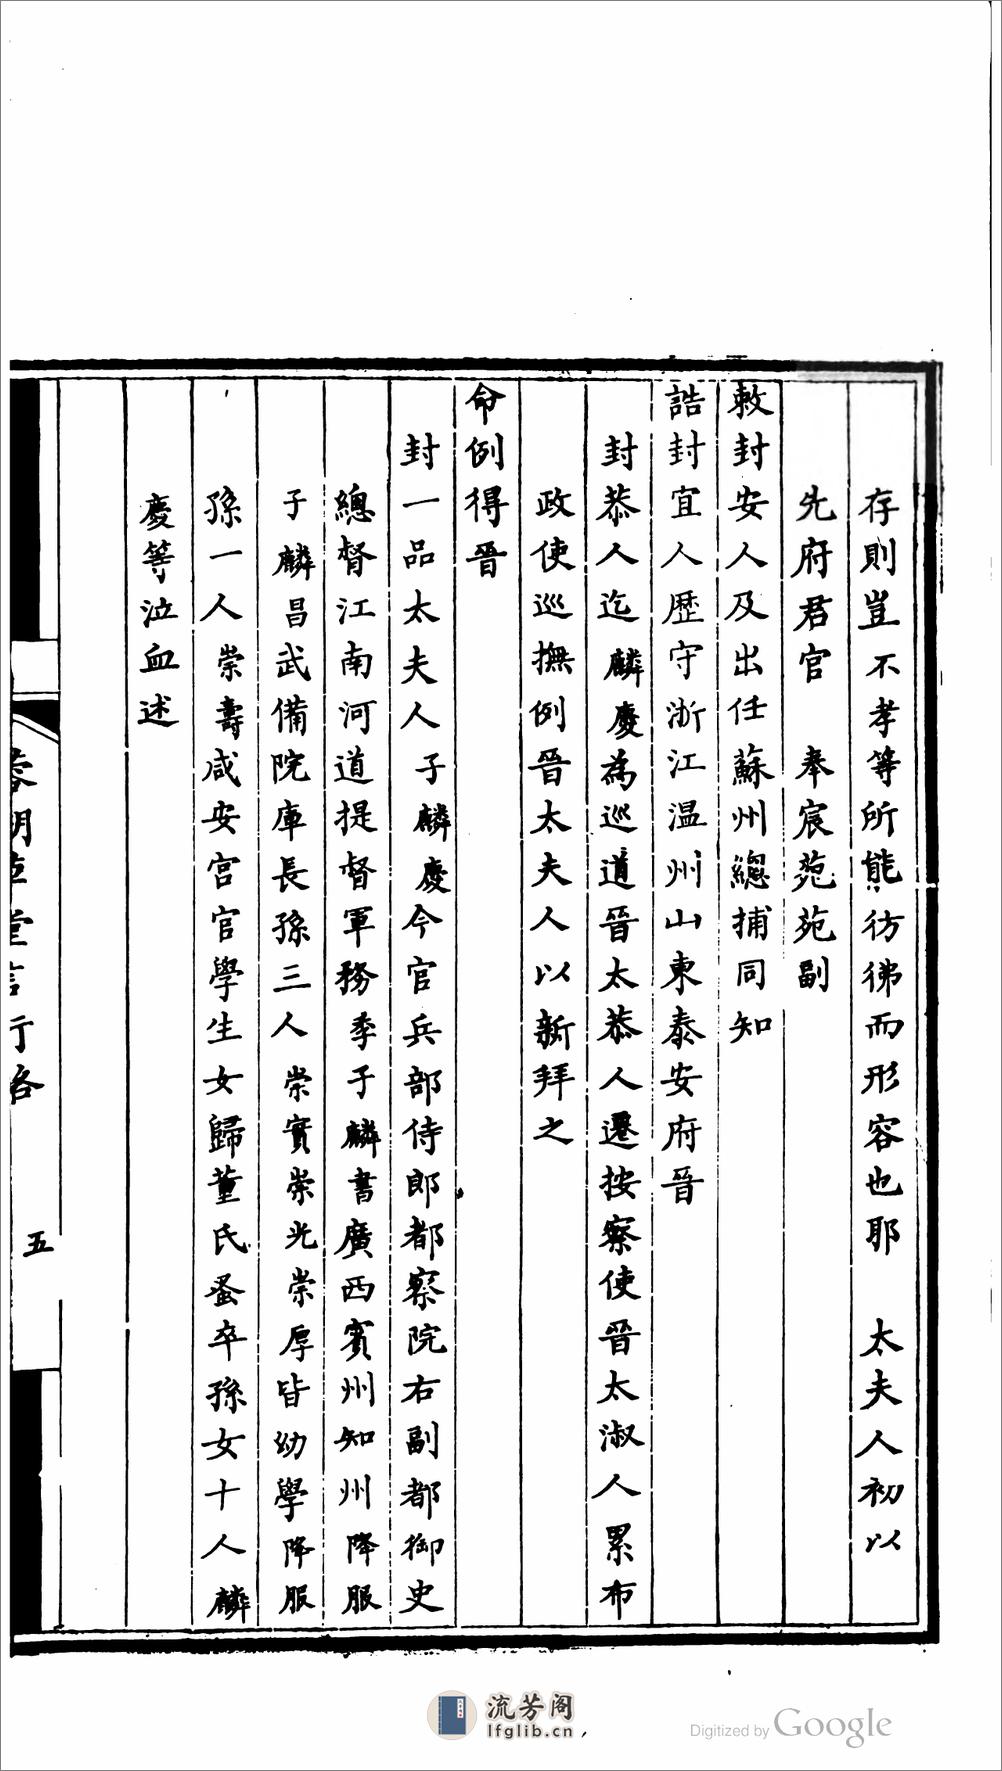 存則豈不孝等所能彷彿而形容也耶　太夫人初以
先府君官　奉宸苑苑副
敕封安人及出任蘇州總捕同知
誥封宜人歷守浙江温州山東泰安府晉
封恭人迄麟慶為巡道晉太恭人遷按察使晉太淑人累布
政使巡撫例晉太夫人以新拜之
命例得晉
封一品太夫人子麟慶今官兵部侍郎都察院右副都御史
總督江南河道提督軍務季子麟書廣西賓州知州降服
子麟昌武備院庫長孫三人崇實崇光崇厚皆幼學降服
孫一人崇壽咸安宮官學生女歸董氏蚤卒孫女十人麟
慶等泣血述
蓉湖草堂言行畧
五
流芳阁
lfglib.cn
Digitized by Google